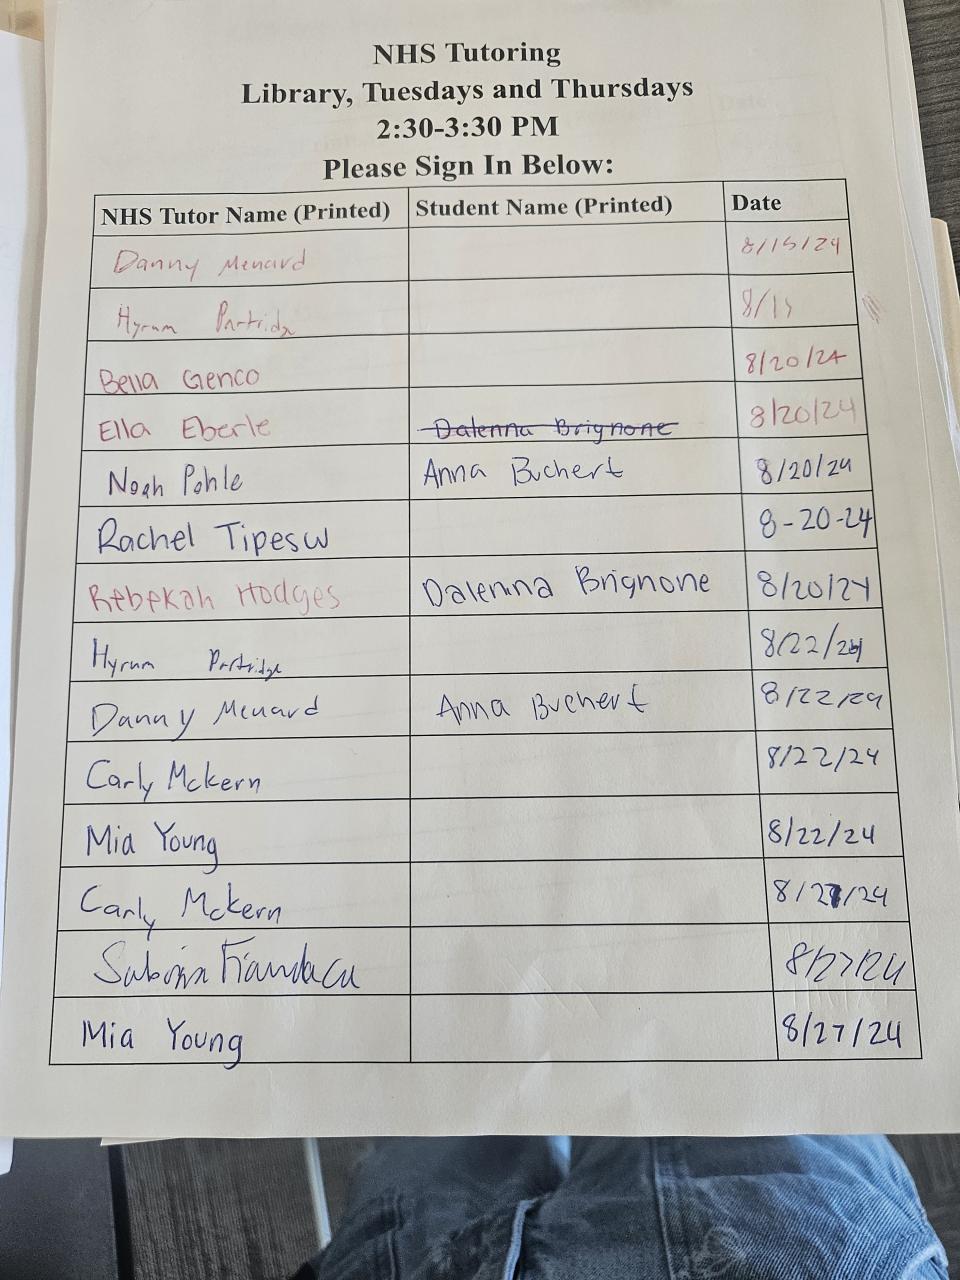 NHS Tutoring
Library, Tuesdays and Thursdays
2:30-3:30 PM
Please Sign In Below:
NHS Tutor Name (Printed) Student Name (Printed) Date
Danny Menard 8/15/24
Hyrum Partridge 8/15
Bella Genco 8/20/24
Ella Eberle Dalenna Brignone 8/20/24
Noah Pohle Anna Buchert 8/20/24
Rachel 8-20-24
Rebekah Hodges Dalenna Brignone 8/20/24
Hyrum Partridge 8/22/24
Danny Menard Anna Buchert 8/22/24
Carly Mckern 8/22/24
Mia Young 8/22/24
Carly Mckern 8/27/24
8/27/24
Mia Young 8/27/24